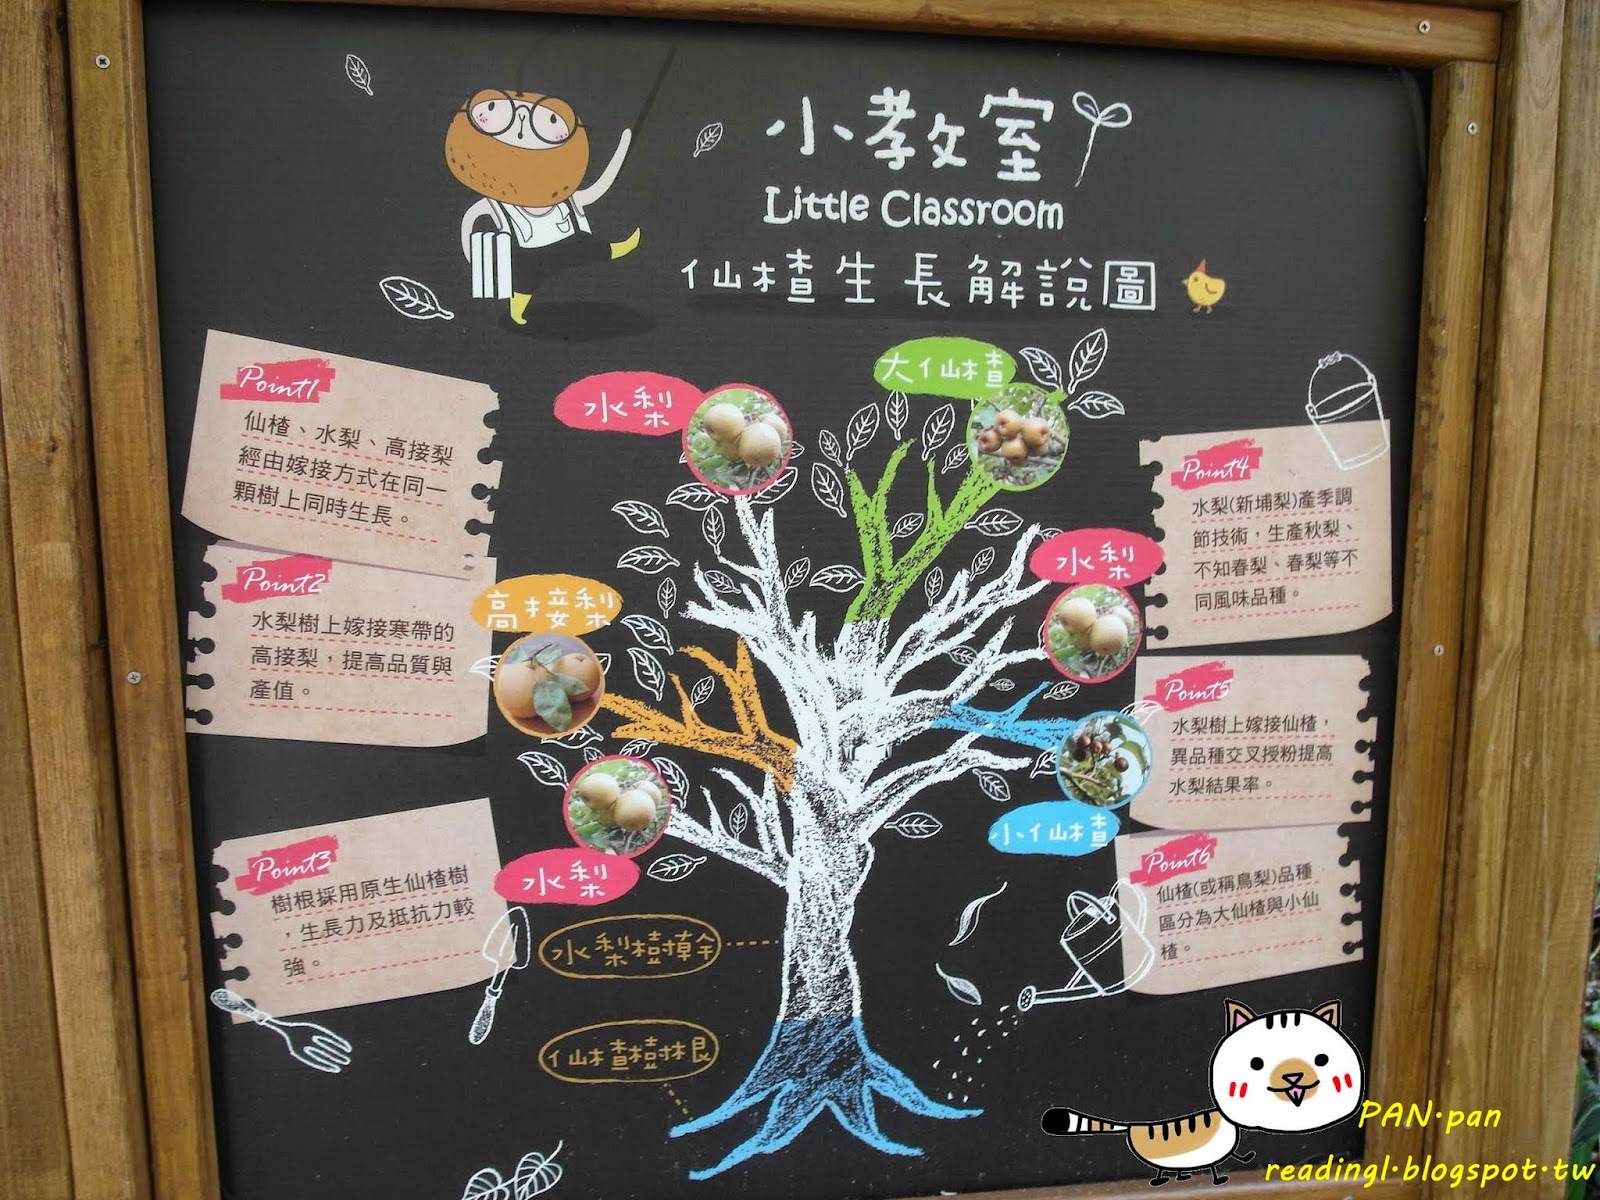 小教室
Little Classroom
仙楂生長解說圖
Point1
仙楂、水梨、高接梨
經由嫁接方式在同一
顆樹上同時生長。
Point2
水梨樹上嫁接寒帶的
高接梨，提高品質與
產值。
Point3
樹根採用原生仙楂樹
，生長力及抵抗力較
強。
水梨
大仙楂
高接梨
水梨
水梨
小仙楂
水梨樹幹
仙楂樹根
Point4
水梨(新埔梨)產季調
節技術，生產秋梨、
不知春梨、春梨等不
同風味品種。
Point5
水梨樹上嫁接仙楂，
異品種交叉授粉提高
水梨結果率。
Point6
仙楂(或稱鳥梨)品種
區分為大仙楂與小仙
楂。
PAN·pan
reading1·blogspot·tw